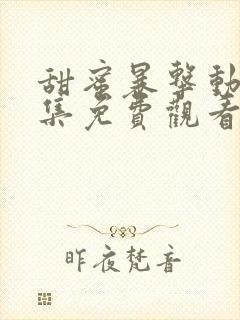 甜蜜暴擊動
集免費觀看
昨夜梵音